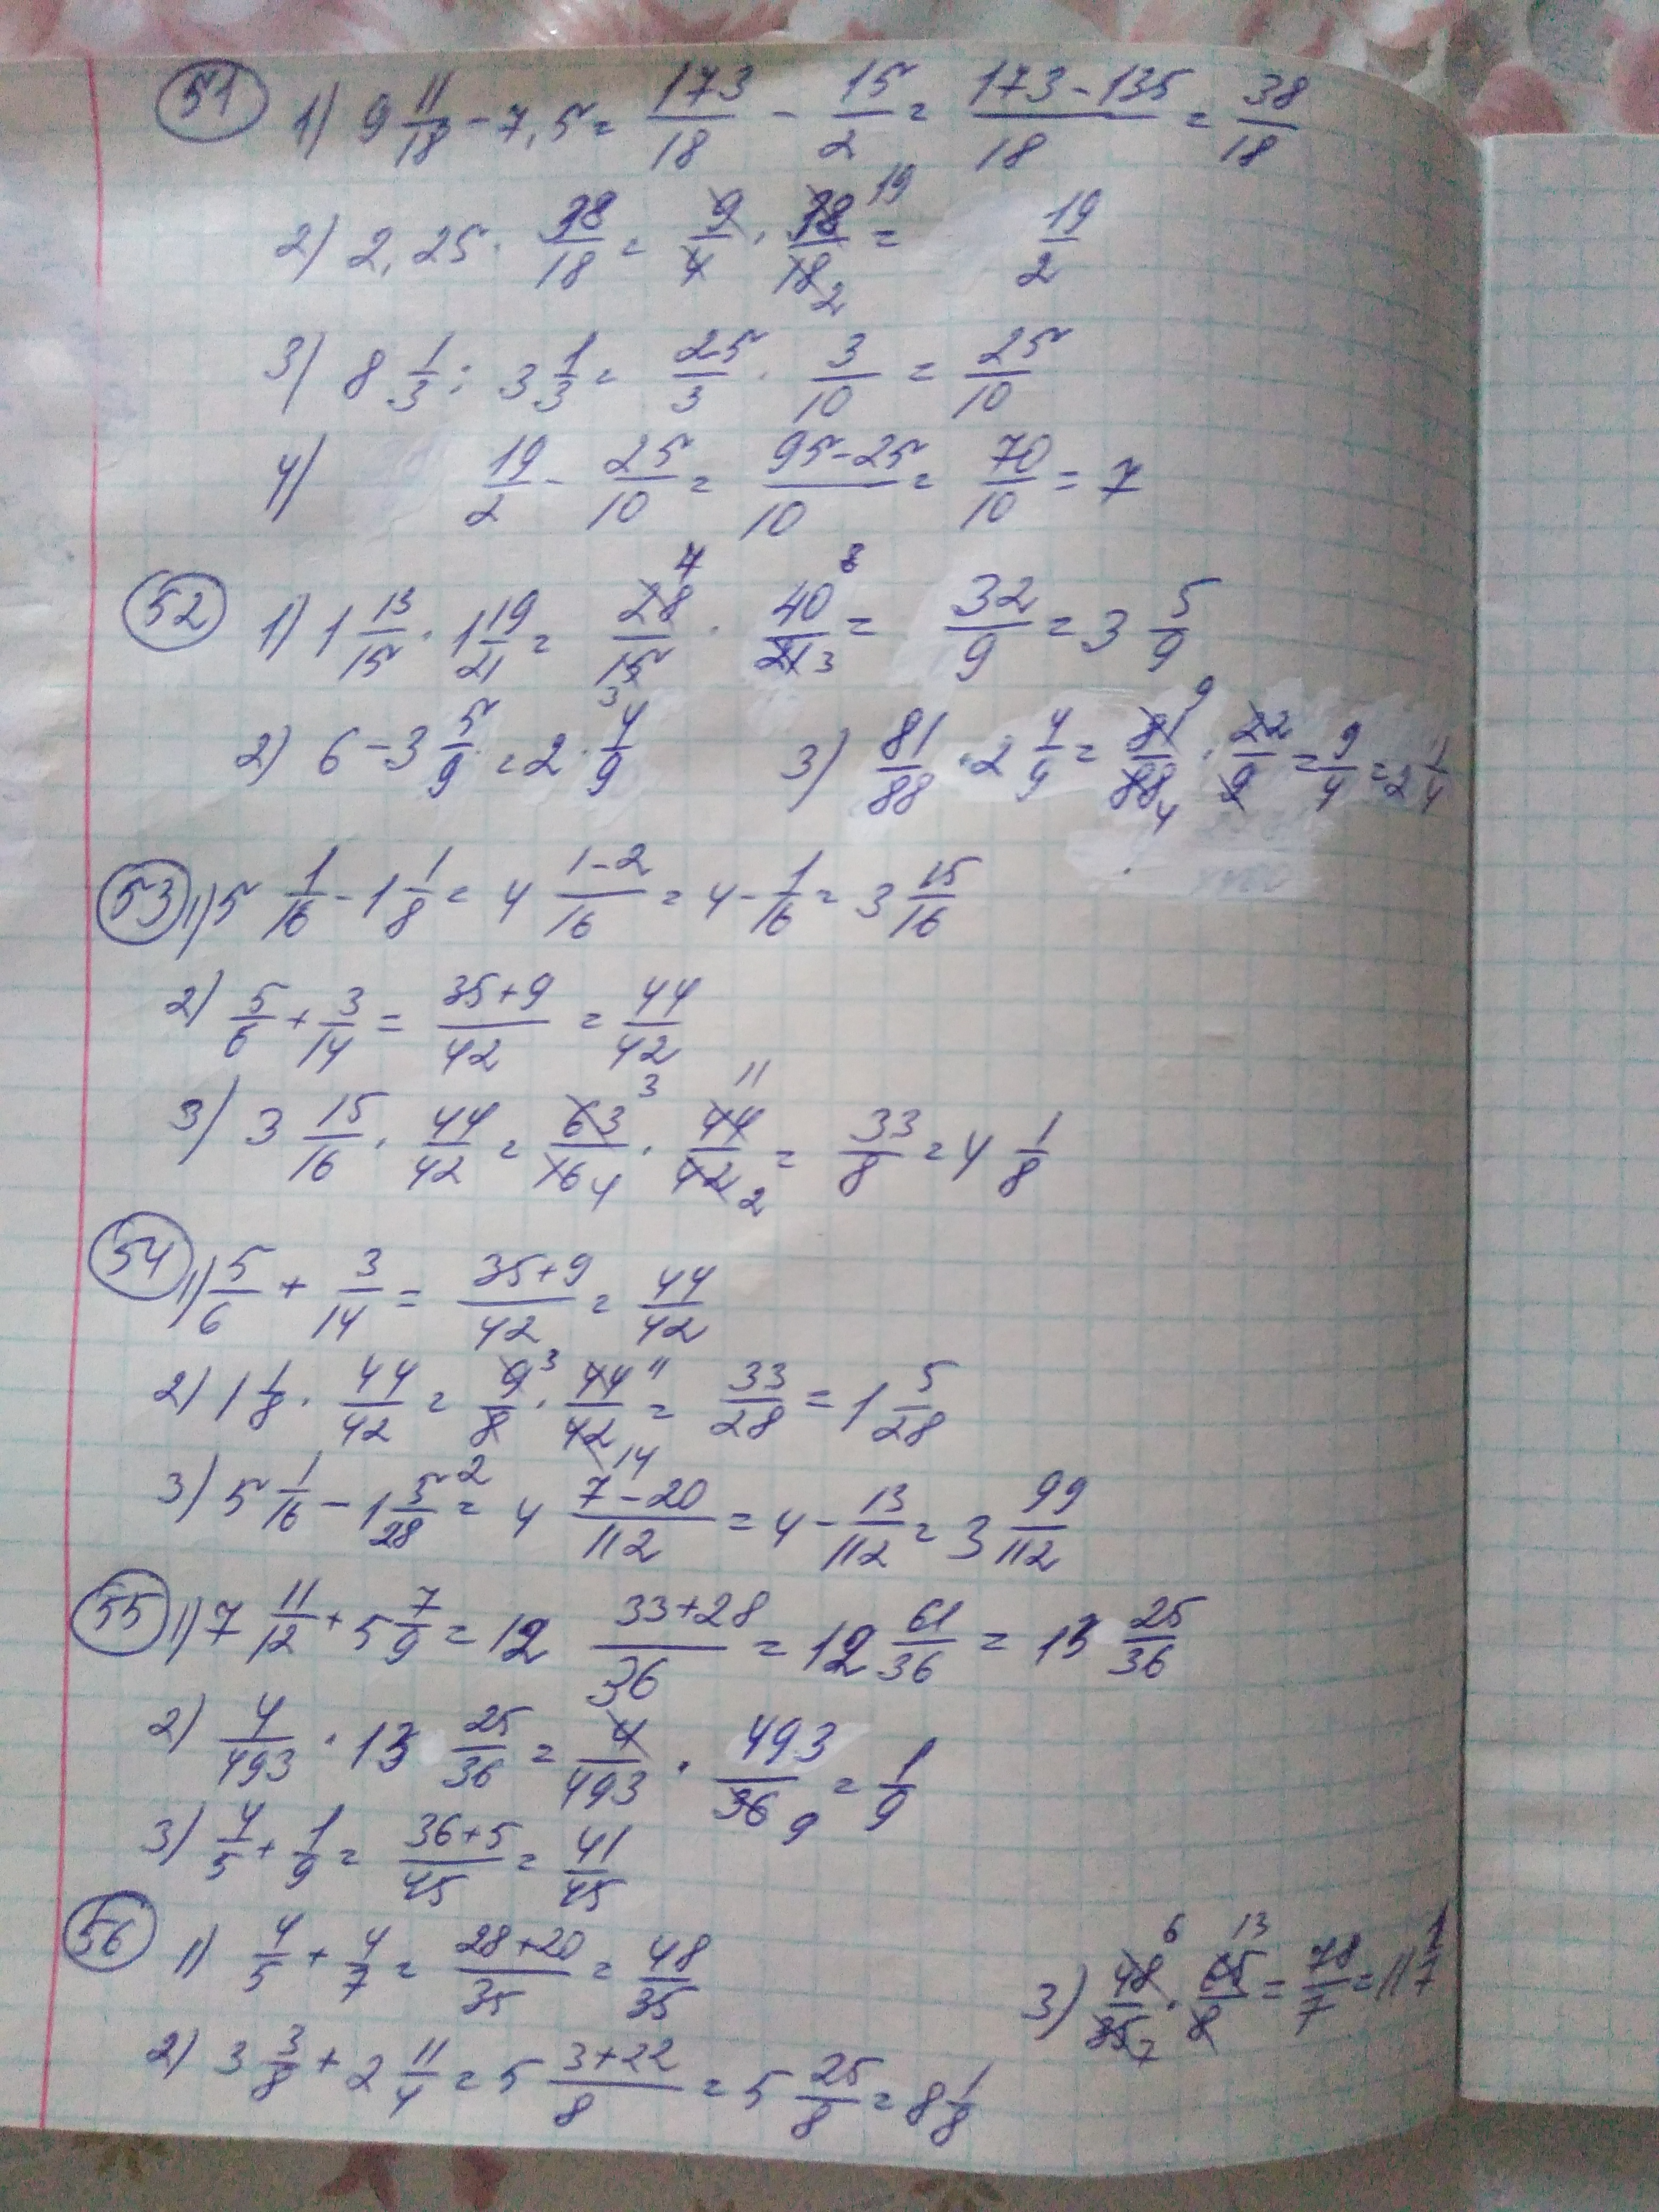 51 1) 9 11/18 - 7,5 = 173/18 - 15/2 = 173-135/18 = 38/18
2) 2,25 · 38/18 = 9/4 · 38/18 19 2 = 19/2
3) 8 1/3 : 3 1/3 = 25/3 · 3/10 = 25/10
4) 19/2 - 25/10 = 95-25/10 = 70/10 = 7
52 1) 1 13/15 · 1 19/21 = 28/15 4 3 · 40/21 8 3 = 32/9 = 3 5/9
2) 6 - 3 5/9 = 2 · 4/9 3) 81/88 · 2 4/9 = 81/88 9 4 · 22/9 = 9/4 = 2 1/4
53 1) 5 1/16 - 1 1/8 = 4 1-2/16 = 4 - 1/16 = 3 15/16
2) 5/6 + 3/14 = 35+9/42 = 44/42
3) 3 15/16 · 44/42 = 63/16 3 4 · 44/42 11 2 = 33/8 = 4 1/8
54 1) 5/6 + 3/14 = 35+9/42 = 44/42
2) 1 1/8 · 44/42 = 9/8 3 · 44/42 11 14 = 33/28 = 1 5/28
3) 5 1/16 - 1 5/28 2 = 4 7-20/112 = 4 - 13/112 = 3 99/112
55 1) 7 11/12 + 5 7/9 = 12 33+28/36 = 12 61/36 = 13 25/36
2) 4/493 · 13 25/36 = 4/493 · 493/36 9 = 1/9
3) 4/5 + 1/9 = 36+5/45 = 41/45
56 1) 4/5 + 4/7 = 28+20/35 = 48/35 3) 48/35 6 7 · 65/8 13 = 78/7 = 11 1/7
2) 3 3/8 + 2 11/4 = 5 3+22/8 = 5 25/8 = 8 1/8